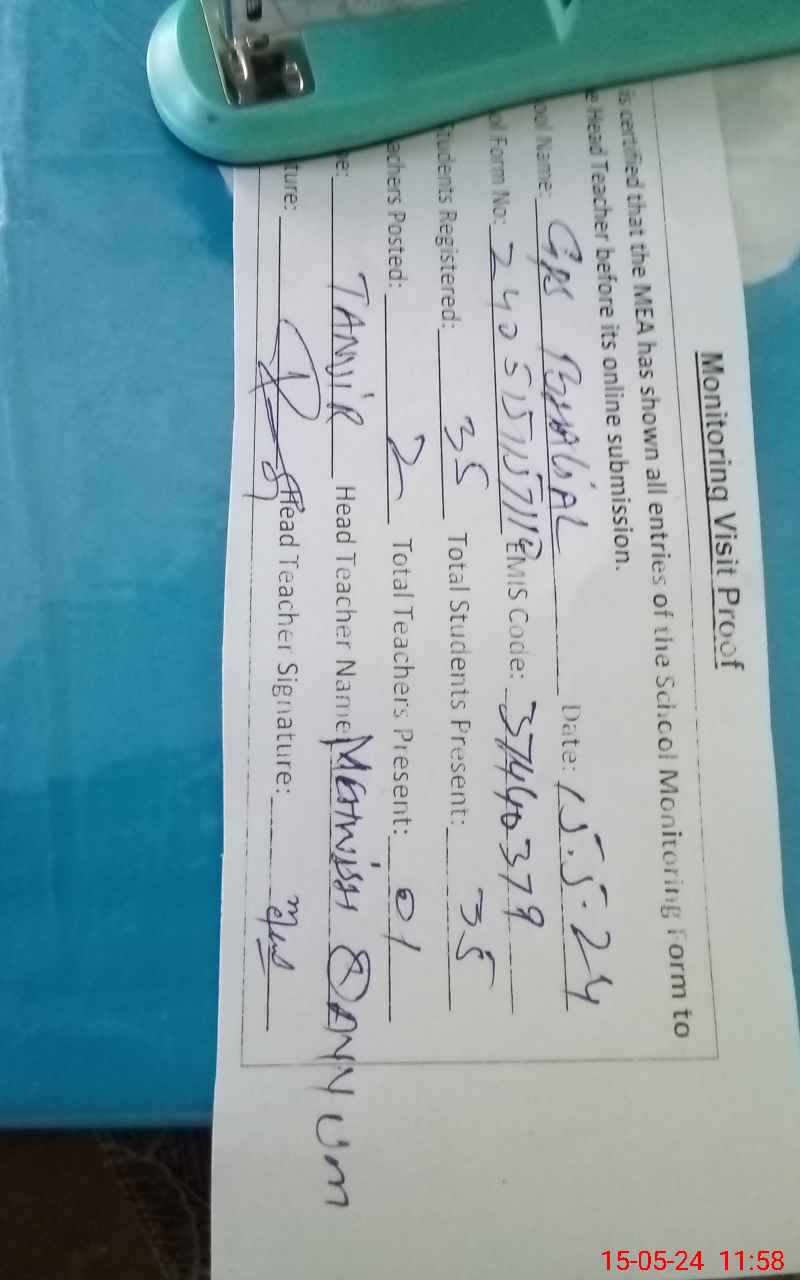 Monitoring Visit Proof
is certified that the MEA has shown all entries of the School Monitoring Form to
e Head Teacher before its online submission.
ool Name: GPS Date: 15.5.24
ol Form No: EMIS Code: 37440379
tudents Registered: 35 Total Students Present: 35
achers Posted: 2 Total Teachers Present: 01
e: TANVIR Head Teacher Name MEHWISH
ture: Head Teacher Signature:
15-05-24 11:58